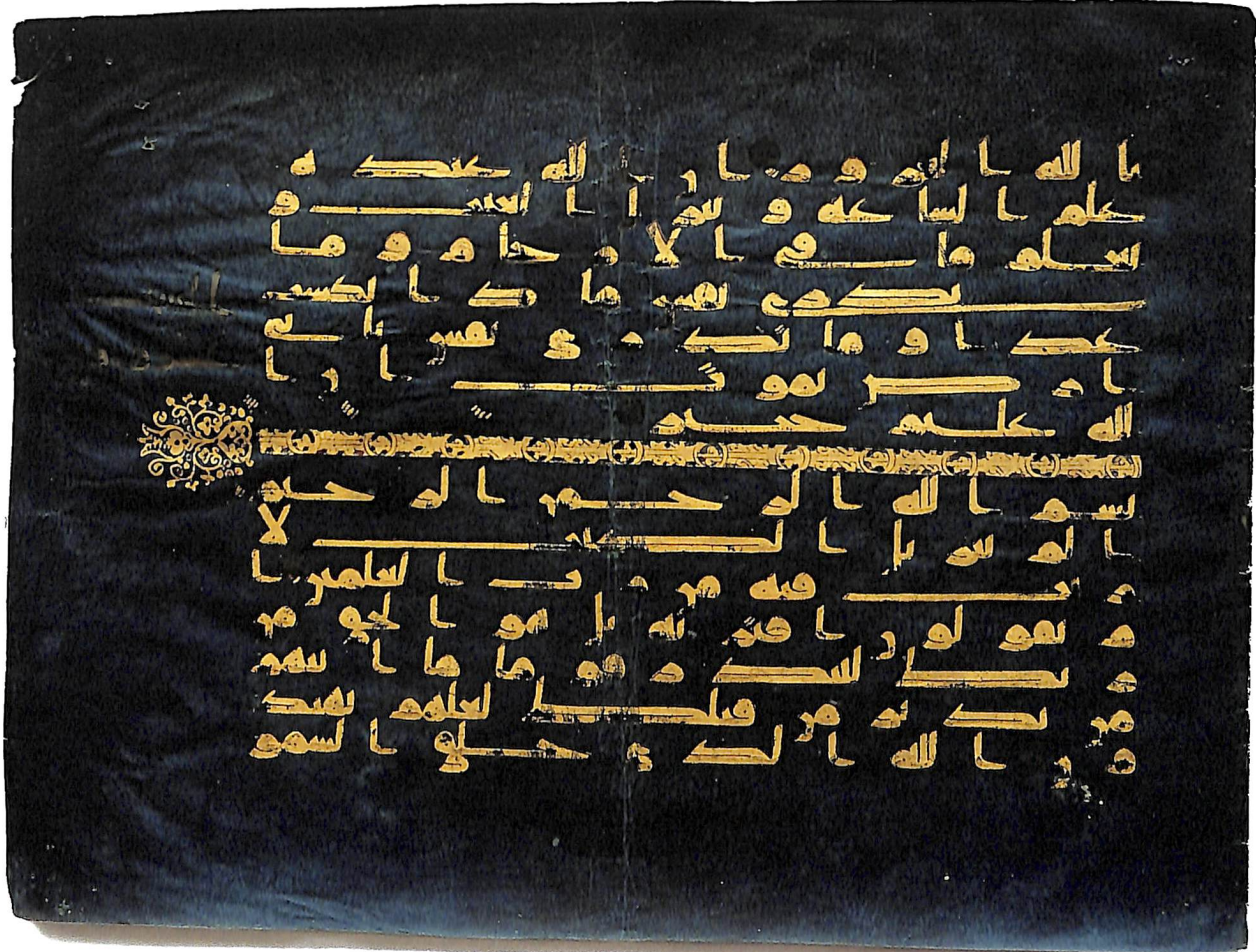 بالله الغرور ان الله عنده
علم الساعه و ينزل الغيث و
يعلم ما في الارحام و ما
تدري نفس ماذا تكسب
غدا و ما تدري نفس باي
ارض تموت ان ا
لله عليم خبير
بسم الله الرحمن الرحيم
الم تنزيل الكتب لا
ريب فيه من رب العلمين ا
م يقولون افتريه بل هو الحق من
ربك لتنذر قوما ما اتيهم
من نذير من قبلك لعلهم يهتد
ون الله الذي خلق السمو